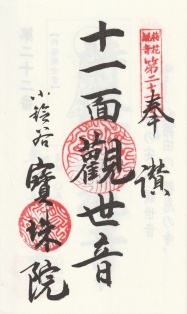 奉讃
第二十
十一面觀世音
小鈴谷 寶珠院